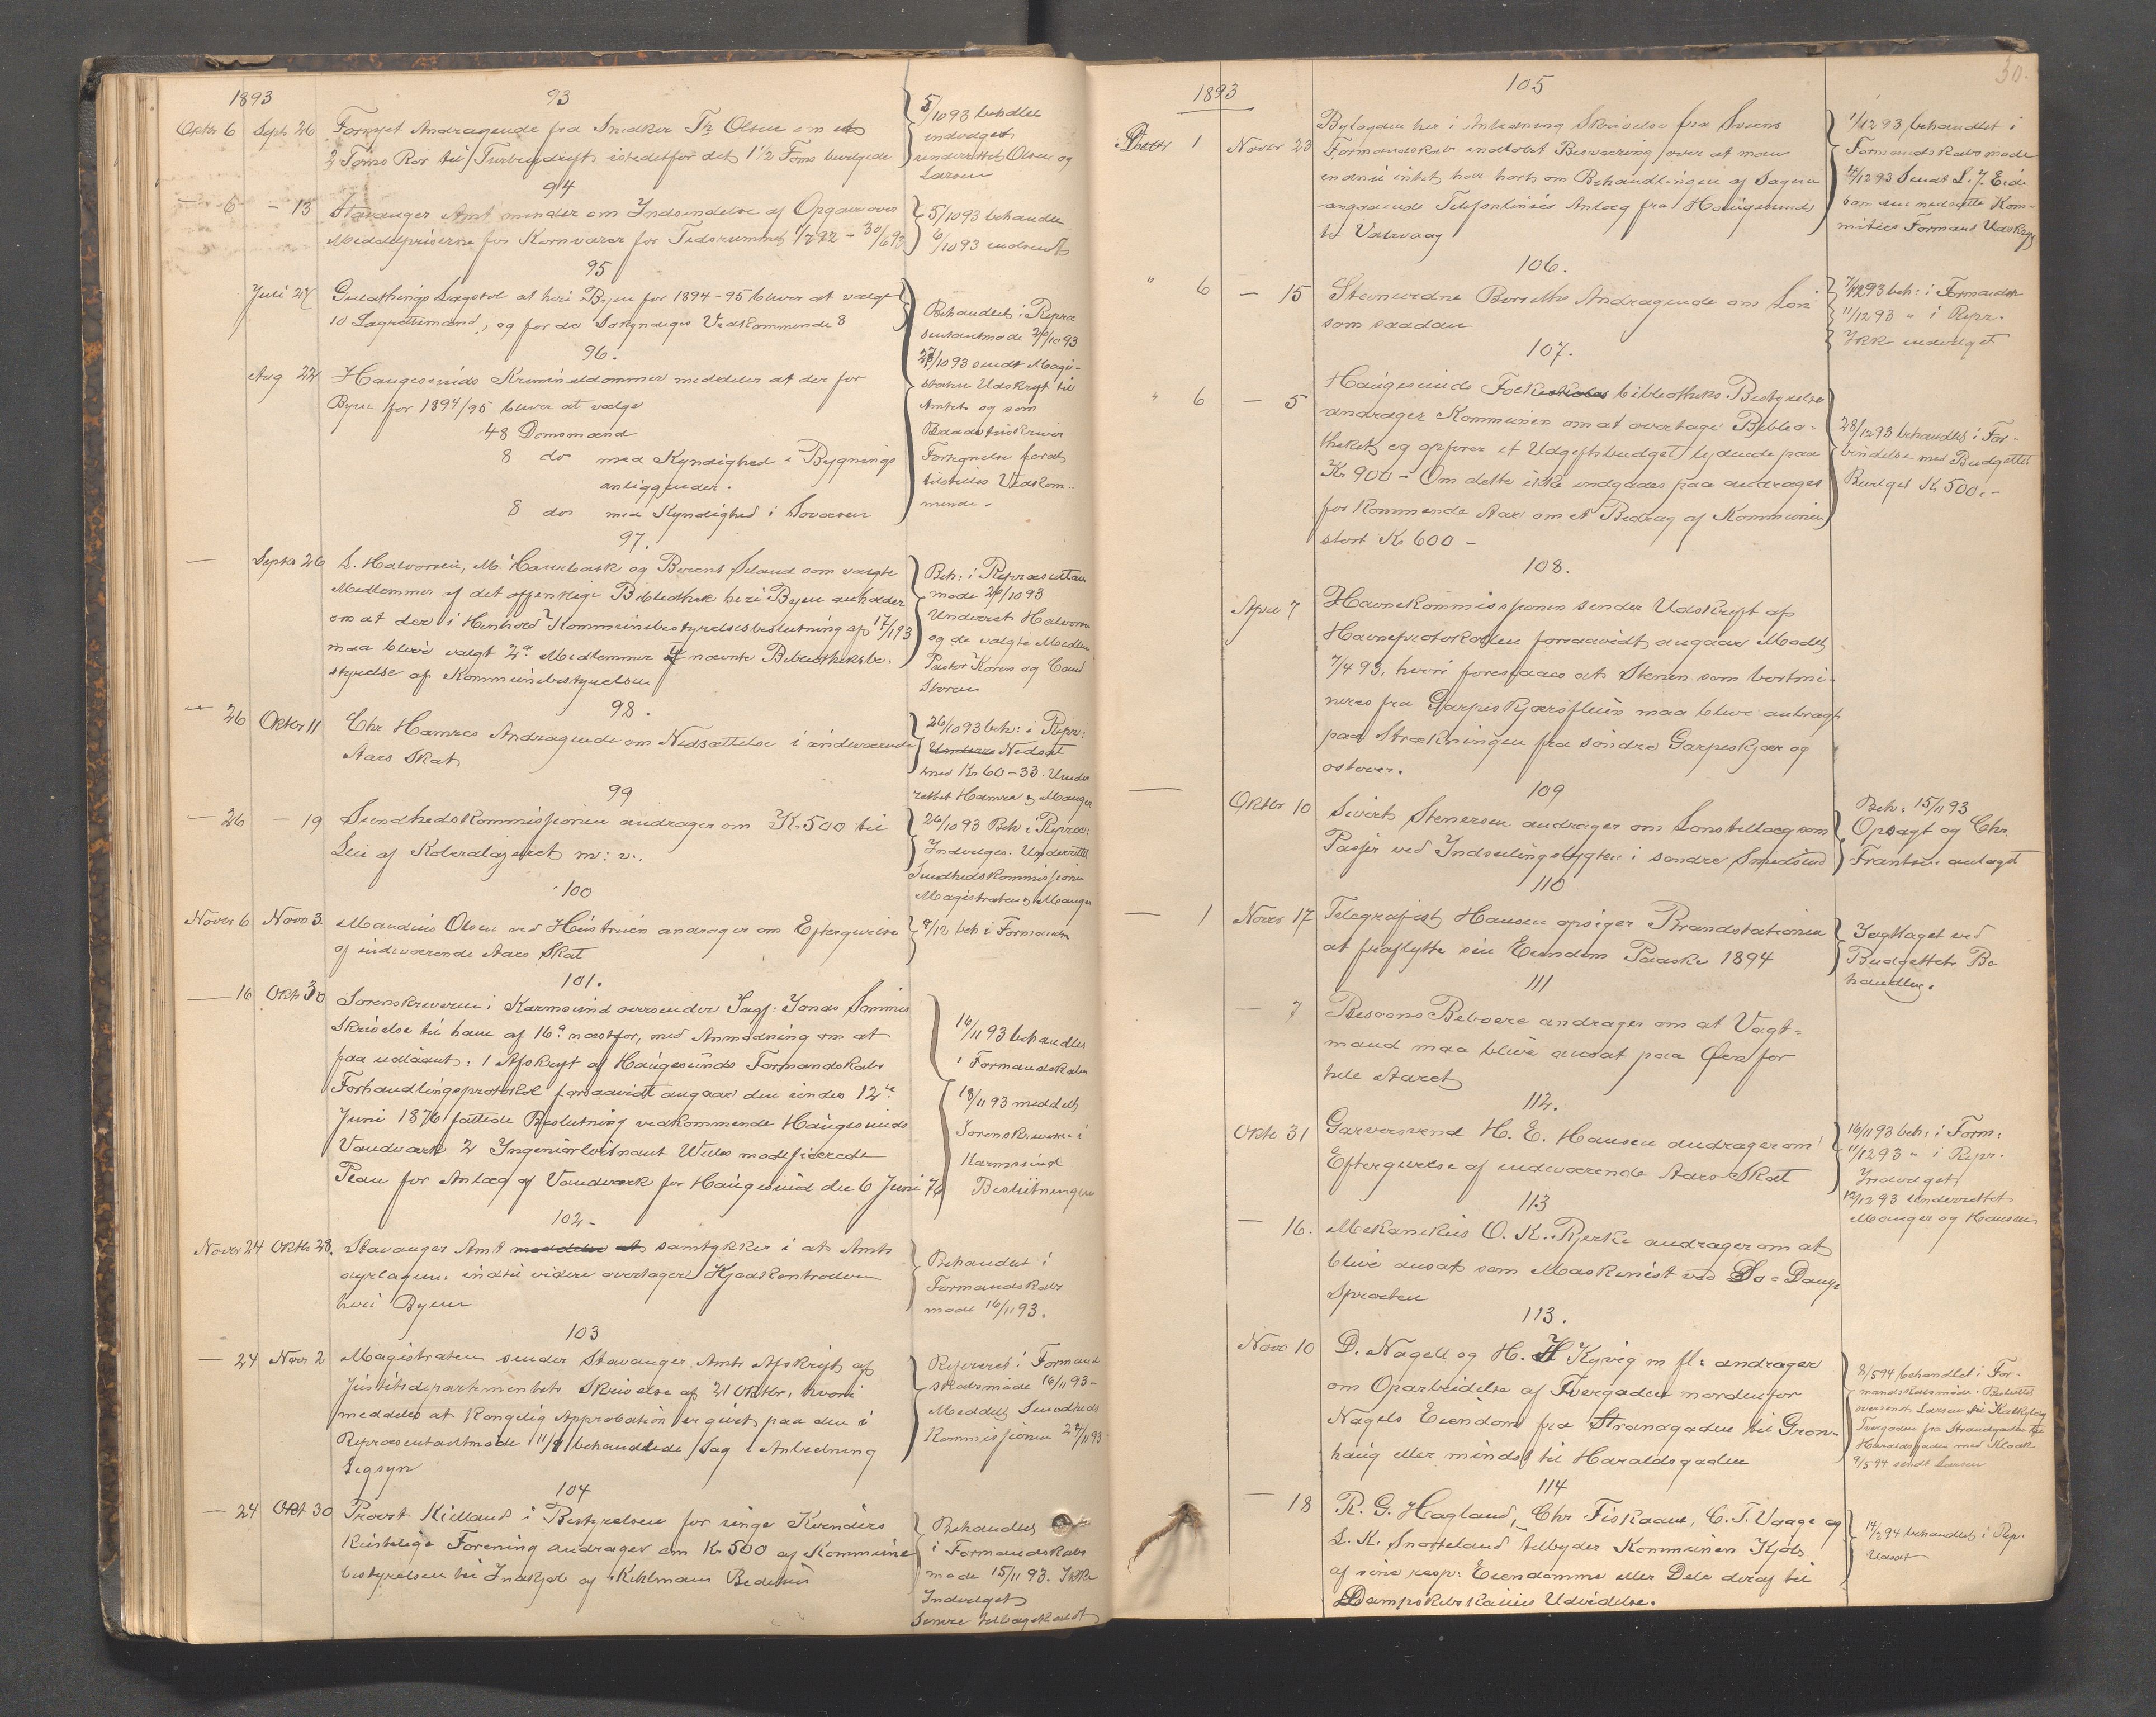 1893
93
Oktbr 6 Septr 26 Fornyet Andragende fra Snedker Th Olsen om et
2 Toms Rør til Turbindrift istedetfor det 1 1/2 Toms bevilgede
5/10 93 behdlet
indvilget
underrettet Olsen og
Larsen
94
— 6 — 13 Stavanger Amt minder om Indsendelse af Opgave over
Middelpriserne for Kornvarer for Tidsrummet 1/7 92 - 30/6 93
5/10 93 behandlet
6/10 93 indsendt
95
Juli 27 Gulathings Lagstol at heri Byen for 1894-95 bliver at vælge
10 Lagrettemænd, og for de Søkyndiges Vedkommende 8
Behandlet i Repræ
sentantmøde 26/10 93
27/10 93 sendt Magi-
straten Udskrift til
Amtet og som
Fortegnelse forat
tilstilles Vedkom-
mende.
96.
Aug 22 Haugesunds Kriminaldommer meddeler at der for
Byen for 1894/95 bliver at vælge
48 Domsmænd
8 do med Kyndighed i Bygnings
anliggender.
8 do med Kyndighed i Søvæsen
97.
— Septr 26 S. Halvorsen, M. Hauebask og Berent Øeland som valgte
Medlemmer af det offentlige Bibliothek heri Byen anholder
om at der i Henhold Kommunebestyrelsesbeslutning af 17/1 93
maa blive valgt 2de Medlemmer af nævnte Bibliotheksbe-
styrelse af Kommunebestyrelsen
Beh: i Repræsentan
møde 26/10 93
Underret Halvorsen
og de valgte Medlem
Pastor Koren og Cand
Storen
98.
— 26 Oktbr 11 Chr Hamres Andragende om Nedsættelse i indeværende
Aars Skat
26/10 93 beh: i Repr:
Underre Nedsat
med Kr 60-33. Under
rettet Hamre & Mauger
99
— 26 — 19 Sundhedskommissionen andrager om Kr 500 til
Leie af Koleralazaret m: v:.
26/10 93 Beh i Repræ:
Indvilges. Underrettet
Sundhedskommissionen
Magistraten & Mauger
100
Novbr 6 Novb 3. Maudius Olsen ved Hustruen andrager om Eftergivelse
af indeværende Aars Skat
9/12 beh i Formandsk
101.
— 16 Oktb 30 Sorenskriveren i Karmsund oversender Sagf: Jonas Sømmes
Skrivelse til ham af 16de næstfor, med Anmodning om at
faa udlaant: 1 Afskrift af Haugesunds Formandskabs
Forhandlingsprotokol forsaavidt angaar den under 12te
Juni 1876 fattede Beslutning vedkommende Haugesunds
Vandværk 2 Ingeniørløitnant Wiles modificerede
Plan for Anlæg af Vandværk for Haugesund den 6 Juni 76
16/11 93 behandles
i Formandskabet
18/11 93 meddelt
Sorenskriveren i
Karmsund
Beslutningen
102-
Novbr 24 Oktbr 28. Stavanger Amt meddeler at samtykker i at Amts
dyrlægen indtil videre overtager Kjødkontrollen
heri Byen
Behandlet i
Formandskabs
møde 16/11 93.
103
— 24 Novr 2 Magistraten sender Stavanger Amts Afskrift af
Justitsdepartementets Skrivelse af 21 Oktbr, hvori
meddeles at Kongelig Approbation er givet paa den i
Repræsentantmøde 11/8 behandlede Sag i Anledning
Ligsyn
Refereret i Formand
skabsmøde 16/11 93-
Meddelt Sundheds
Kommissionen 24/11 93
104
— 24 Okt 30 Provst Kielland i Bestyrelsen for unge Kvinders
kristelige Forening andrager om Kr 500 af Kommune
bestyrelsen til Indkjøb af Kihlmans Bedehus
Behandlet
i Formandskabs
møde 15/11 93. Ikke
Indvilget
Senere tilbagekaldt
30.
1893
105
Decbr 1 Novbr 23 Bylægden her i Anledning Skrivelse fra Sveens
Formandskab indløbet Besværing over at man
endnu intet har hørt om Behandlingen af Sagen
angaaende Telefonlinies Anlæg fra Haugesund
til Valevaag
1/12 93 behandlet i
Formandskabsmøde
4/12 93 Sendt L. J. Eide
som den nedsatte Kom-
mitees Formand Udskrift
106.
" 6 — 15 Stenverdne Andragende om Løn
som saadan
7/12 93 beh: i Formandsk
11/12 93 " i Repr.
Ikke indvilget
107.
" 6 — 5 Haugesunds Folkeskoles bibliotheks Bestyrelse
andrager Kommunen om at overtage Biblio-
theket og opfører et Udgiftsbudget lydende paa
Kr 900 - Om dette ikke indgaaes paa andrages
for kommende Aar om et Bidrag af Kommunen
stort Kr 600 -
28/12 93 behandlet i For-
bindelse med Budgettet
Bevilget Kr 500.-
108.
April 7 Havnekommissionen sender Udskrift af
Havneprotokollen forsaavidt angaar Mødet
7/4 93, hvori foreslaaes at Stenen som bortmi-
neres fra Garpeskjærsfluen maa blive anbragt
paa Strækningen fra søndre Garpeskjær og
østover.
109
— Oktbr 10 Sivert Stenersen andrager om Lønstillæg som
Passer ved Indseilingslygten i søndre Smedsund
Beh: 15/11 93
Opsagt og Chr.
Frantsen antaget
110
— 1 Novbr 17 Telegrafist Hansen opsiger Brandstationen
at fraflytte sin Eiendom Paaske 1894
Iagttaget ved
Budgettets Be
handling.
111
— 7 Risøens Beboere andrager om at Vagt-
mand maa blive ansat paa Øen for
hele Aaret
112.
Oktb 31 Garversvend H. E. Hansen andrager om
Eftergivelse af indeværende Aars Skat
16/11 93 beh: i Form:
11/12 93 " i Repr.
Indvilget
12/12 93 underrettet
Mauger og Hansen
113
— 16. Mekanikus O. K. Bjerke andrager om at
blive ansat som Maskinist ved So= Damp
sprøiten
113.
Novb 10 D. Nagell og H. H Kyvig m fl: andrager
om Oparbeidelse af Tvergaden nordenfor
Nagels Eiendom fra Strandgaden til Grøn-
haug eller mindst til Haraldsgaden
8/5 94 behandlet i For-
mandskabsmøde. Besluttet
oversendt Larsen til Kalkyle
Tvergaden fra Strandgaden til
Haraldsgaden med Kloak
9/5 94 sendt Larsen
114
— 18 R. G. Hagland, Chr Fiskaaen, C. T. Vaage og
L. K. Snørteland tilbyder Kommunen Kjøb
af sine resp: Eiendomme eller Dele deraf til
Dampskibskaiens Udvidelse.
14/2 94 behandlet i Rep:
Udsat